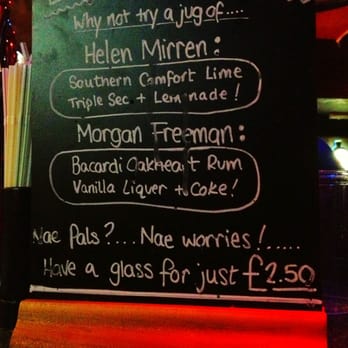 Why not try a jug of....
Helen Mirren:
Southern Comfort Lime
Triple Sec + Lemonade!
Morgan Freeman:
Bacardi Oakheart Rum
Vanilla Liquer + Coke!
Nae Pals?...Nae worries!.....
Have a glass for just £2.50